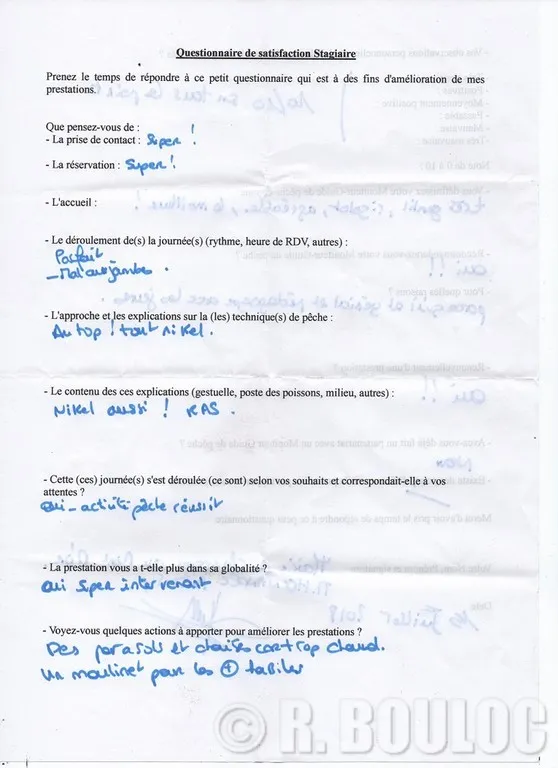 Questionnaire de satisfaction Stagiaire
Prenez le temps de répondre à ce petit questionnaire qui est à des fins d'amélioration de mes
prestations.
Que pensez-vous de :
- La prise de contact : Super !
- La réservation : Super !
- L'accueil :
- Le déroulement de(s) la journée(s) (rythme, heure de RDV, autres) :
Parfait
- Mal aux jambes.
- L'approche et les explications sur la (les) technique(s) de pêche :
Au top ! tout nikel.
- Le contenu des ces explications (gestuelle, poste des poissons, milieu, autres) :
Nikel aussi ! RAS.
- Cette (ces) journée(s) s'est déroulée (ce sont) selon vos souhaits et correspondait-elle à vos
attentes ?
oui - activité pêche réussit
- La prestation vous a t-elle plus dans sa globalité ?
oui super intervenant
- Voyez-vous quelques actions à apporter pour améliorer les prestations ?
Des parasols et chaises car trop chaud.
un moulinet pour les + habiles
© R. BOULOC